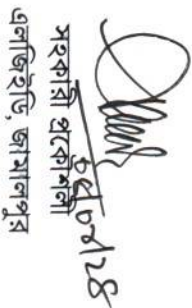 সহকারী প্রকৌশলী
এলজিইডি, জামালপুর